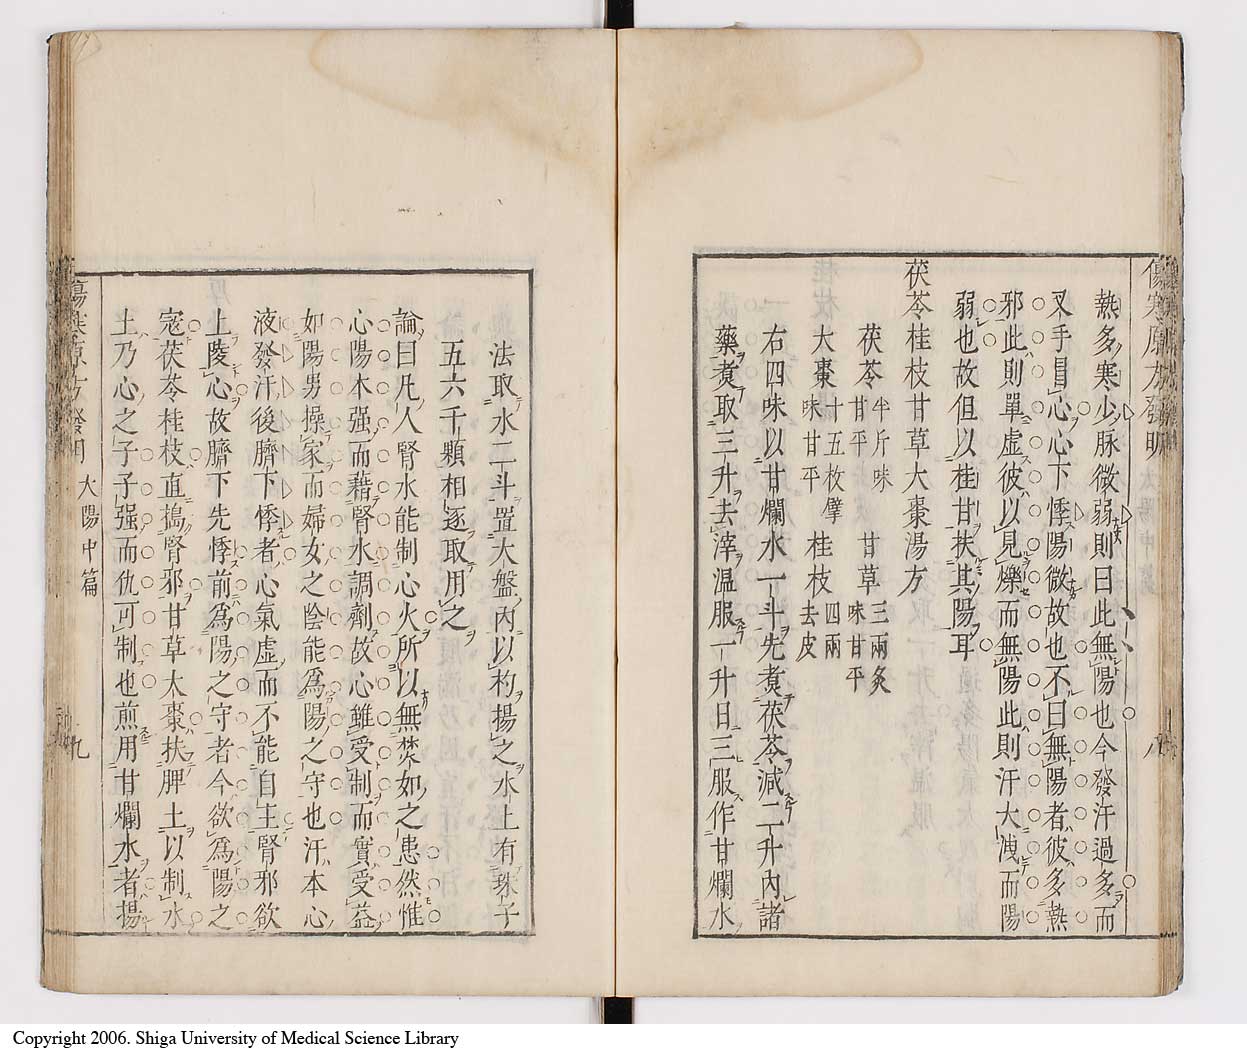 傷寒原方發明
熱多寒少脉微弱則曰此無陽也今發汗過多而
叉手冒心心下悸陽微故也不曰無陽者彼多熱
邪此則單虛彼以見爍而無陽此則汗大洩而陽
弱也故但以桂甘扶其陽耳
茯苓桂枝甘草大棗湯方
茯苓半斤味甘平 甘草三兩炙味甘平
大棗十五枚擘味甘平 桂枝四兩去皮
右四味以甘爛水一斗先煮茯苓減二升內諸
藥煮取三升去滓温服一升日三服作甘爛水
八
法取水二斗置大盤內以杓揚之水上有珠子
五六千顆相逐取用之
論曰凡人腎水能制心火所以無焚如之患然惟
心陽本强而藉腎水調劑故心雖受制而實受益
如陽男操家而婦女之陰能爲陽之守也汗本心
液發汗後臍下悸者心氣虛而不能自主腎邪欲
上陵心故臍下先悸前爲陽之守者今欲爲陽之
寇茯苓桂枝直搗腎邪甘草大棗扶脾土以制水
土乃心之子子强而仇可制也煎用甘爛水者揚
傷寒原方發明
太陽中篇
九
Copyright 2006. Shiga University of Medical Science Library